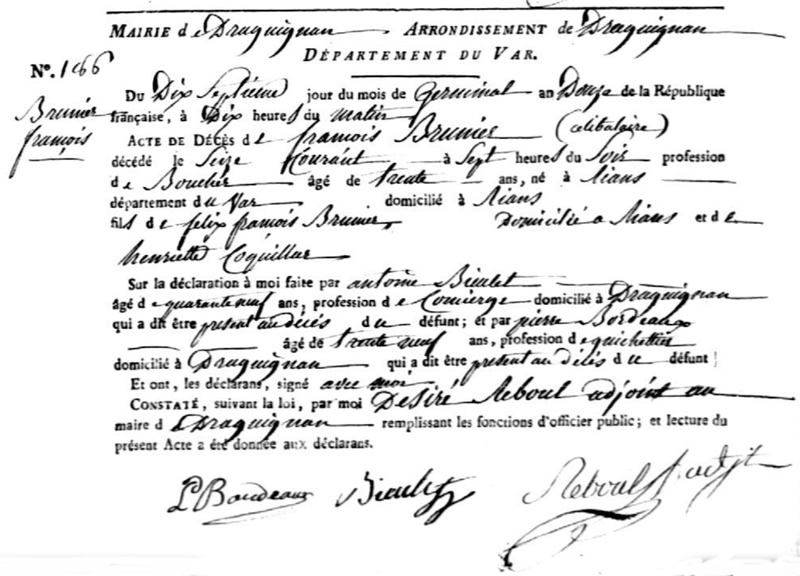 MAIRIE de Draguignan ARRONDISSEMENT de Draguignan
DÉPARTEMENT DU VAR.
N°. 166
Brunier
françois
Du Dix Septieme jour du mois de Germinal an Douze de la République
française, à Dix heures du matin
ACTE DE DÉCÈS de françois Brunier (celibataire)
décédé le Seize Courant à Sept heures du Soir profession
de Boucher âgé de trente ans, né à Rians
département du Var domicilié à Rians
fils de felix françois Brunier, Domicilié a Rians et de
henriette Coquillat
Sur la déclaration à moi faite par antoine Bieulet
âgé de quarante neuf ans, profession de Concierge domicilié à Draguignan
qui a dit être present au décés du défunt; et par pierre Bordeaux
âgé de trente neuf ans, profession de guichetier
domicilié à Draguignan qui a dit être present au décés du défunt;
Et ont, les déclarans, signé avec moi
CONSTATÉ, suivant la loi, par moi Desiré Reboul adjoint au
maire de Draguignan remplissant les fonctions d'officier public; et lecture du
présent Acte a été donnée aux déclarans.
P Bordeaux Bieulet Reboul adjt